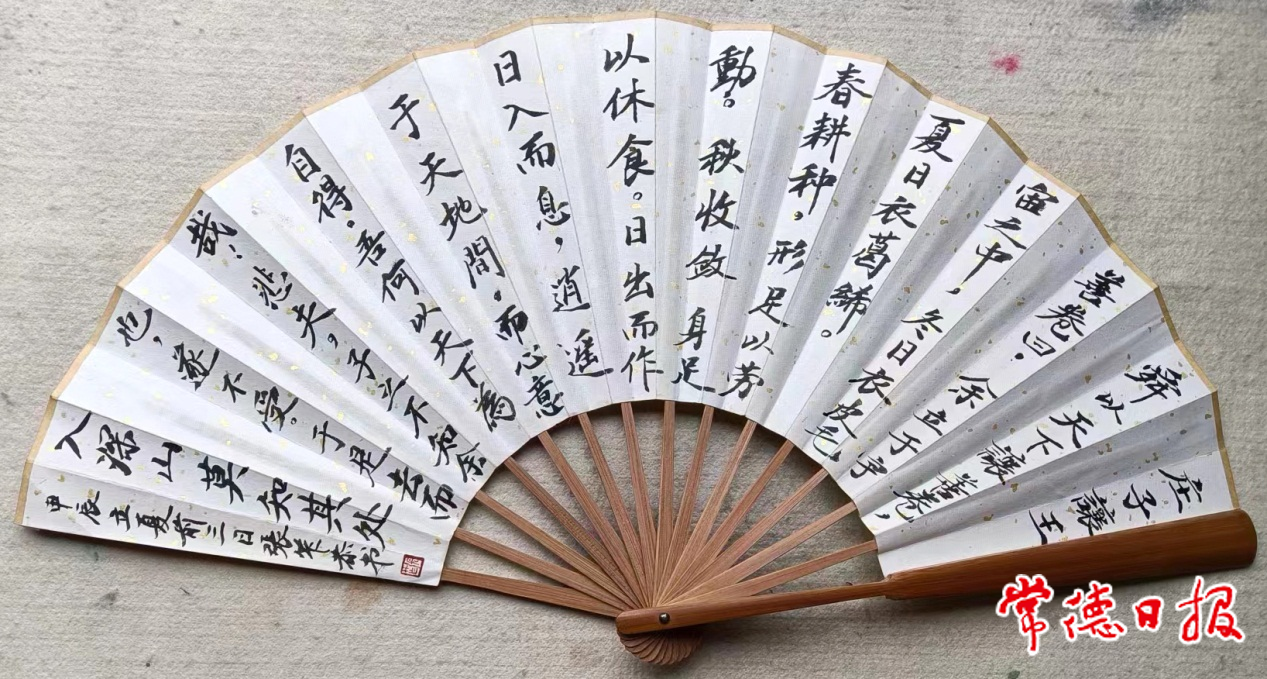 庄子讓王
舜以天下讓善卷，
善卷曰，余立于宇
宙之中，冬日衣皮毛
夏日衣葛絺。
春耕种，形足以劳
動。秋收敛身足
以休食。日出而作
日入而息，逍遥
于天地間，而心意
自得。吾何以天下為
哉！悲夫。子之不知余
也，遂不受。于是去而
入深山莫知其处
甲辰立夏前二日張恭书
常德日报